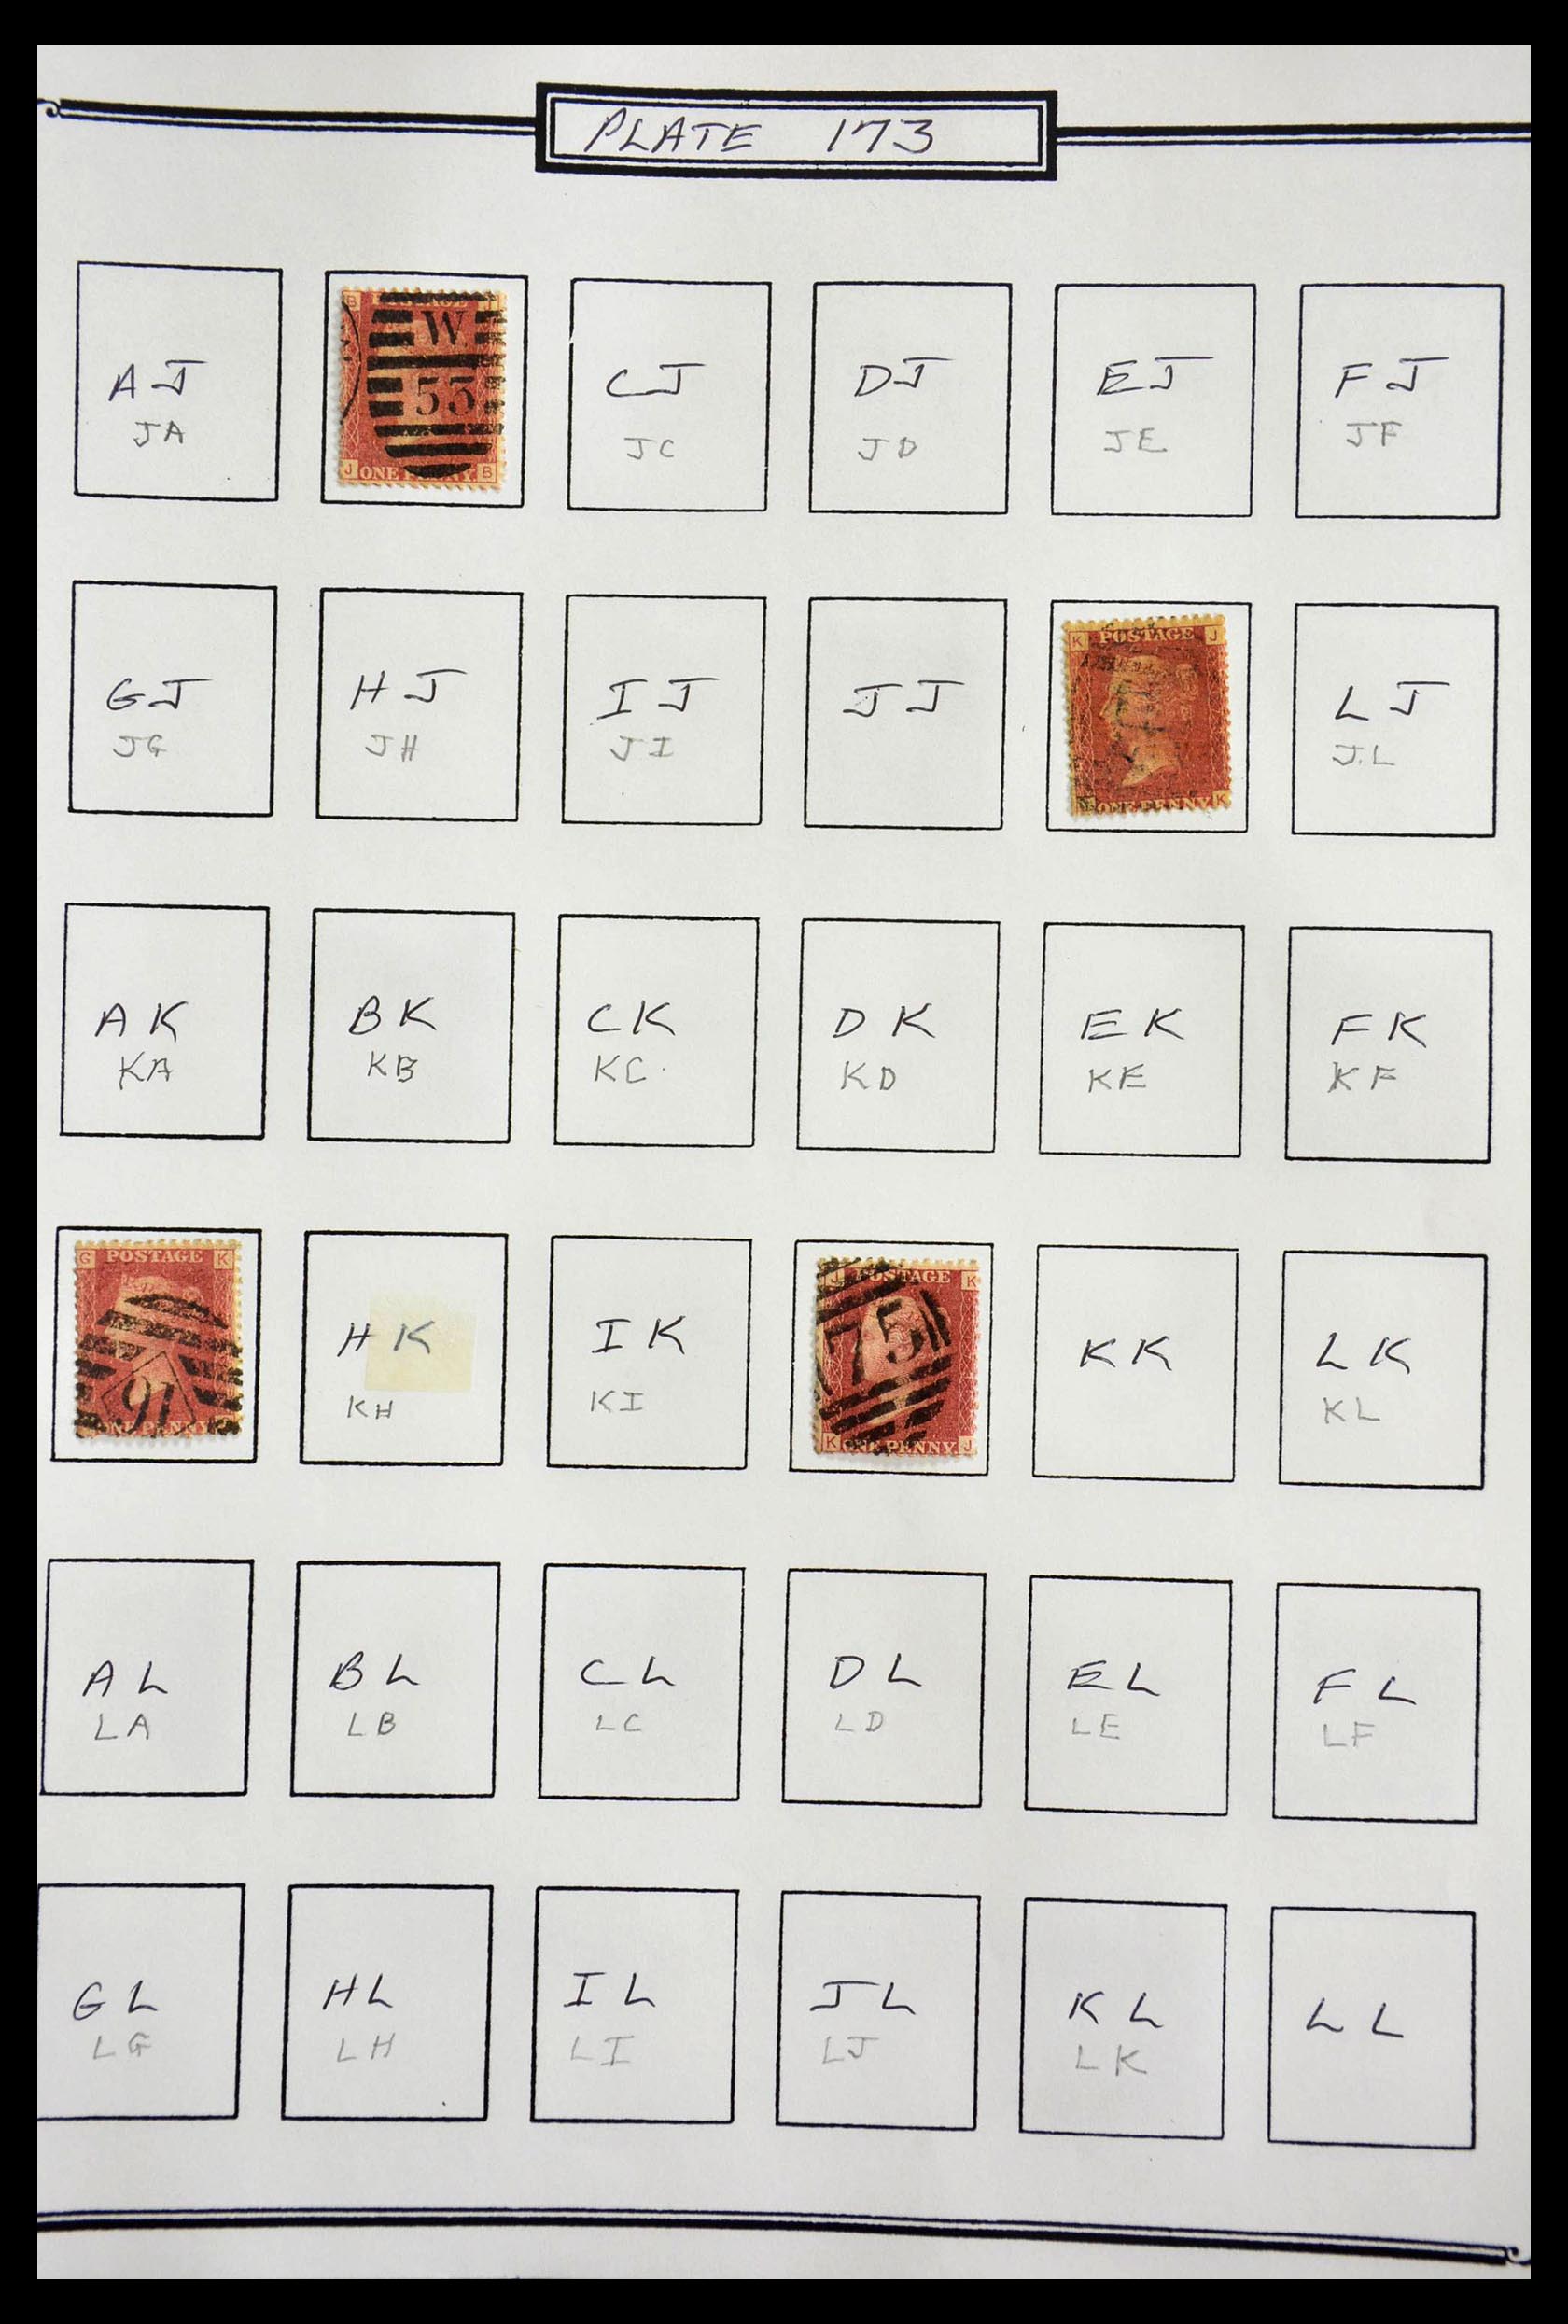 PLATE 173
AJ
JA
B
W.
53
J ONE PENNY. B
CJ
JC
DJ
JD
EJ
JE
FJ
JF
GJ
JG
HJ
JH
IJ
JI
JJ
K POSTAGE J
ONE PENNY K
LJ
J.L
AK
KA
BK
KB
CK
KC
DK
KD
EK
KE
FK
KF
G POSTAGE K
91
ONE PENNY
HK
KH
IK
KI
J POSTAGE K
75
K ONE PENNY. J
KK
LK
KL
AL
LA
BL
LB
CL
LC
DL
LD
EL
LE
FL
LF
GL
LG
HL
LH
IL
LI
JL
LJ
KL
LK
LL